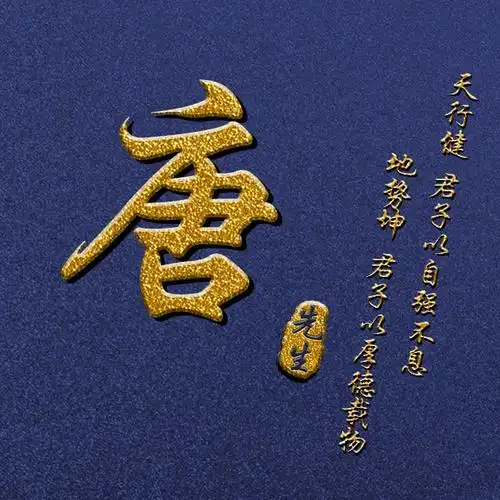 唐
先生
天行健 君子以自强不息
地势坤 君子以厚德载物